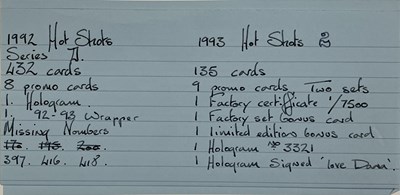 1992 Hot Shots
Series J.
432 cards
8 promo cards
1. Hologram.
1. 92-93 Wrapper
Missing Numbers
173. 195. 200.
397. 416. 418.
1993 Hot Shots 2
135 cards
9 promo cards. Two sets
1 Factory certificate 1/7500
1 Factory set bonus card
1 limited edition bonus card
1 Hologram No 3321
1 Hologram Signed 'love Dawn'.